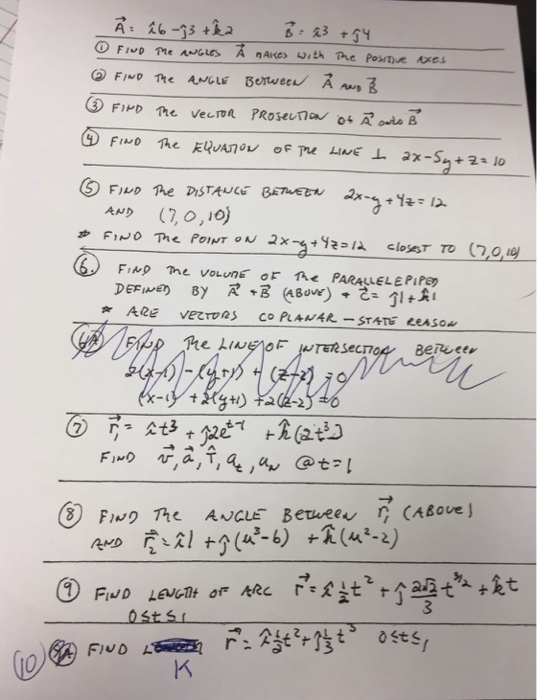 A⃗ = î6 - ĵ3 + k̂2   B⃗ = î3 + ĵ4
① FIND THE ANGLES A⃗ MAKES WITH THE POSITIVE AXES
② FIND THE ANGLE BETWEEN A⃗ AND B⃗
③ FIND THE VECTOR PROJECTION OF A⃗ onto B⃗
④ FIND THE EQUATION OF THE LINE ⊥ 2x-5y+z=10
⑤ FIND THE DISTANCE BETWEEN 2x-y+4z=12
AND (7,0,10)
* FIND THE POINT ON 2x-y+4z=12 CLOSEST TO (7,0,10)
⑥. FIND THE VOLUME OF THE PARALLELEPIPED
DEFINED BY A⃗ + B⃗ (ABOVE) + C⃗ = ĵ1 + k̂1
* ARE VECTORS COPLANAR - STATE REASON
FIND THE LINE OF INTERSECTION BETWEEN
2(x-1) - (y+1) + (z-2) = 0
(x-1) + 2(y+1) + 2(z-2) = 0
⑦ r⃗₁ = ît³ + ĵ2e^(t-1) + k̂(2t³)
FIND v⃗, a⃗, T̂, a_t, a_N @ t=1
⑧ FIND THE ANGLE BETWEEN r⃗₁ (ABOVE)
AND r⃗₂ = î1 + ĵ(u³-6) + k̂(u²-2)
⑨ FIND LENGTH OF ARC r⃗ = î½t² + ĵ(2√2/3)t^(3/2) + k̂t
0≤t≤1
⑩ FIND K r⃗ = î½t² + ĵ⅓t³ 0≤t≤1